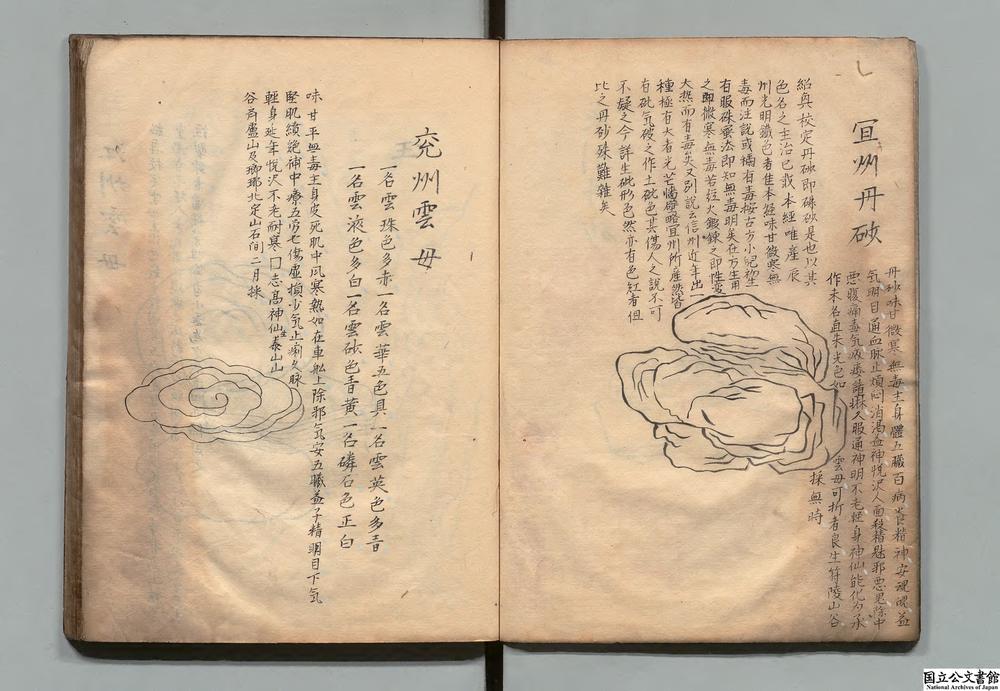 宜州丹砂
丹砂味甘微寒無毒主身體五臓百病養精神安魂魄益
氣明目通血脉止煩悶消渇益神悦沢人面殺精魅邪悪鬼除中
悪腹痛毒気疥瘻諸瘡久服通神明不老軽身神仙能化為汞
作末名真朱光色如
雲母可折者良生符陵山谷
採無時
紹興校定丹砂即硃砂是也以其
色名之主治已載本経唯産辰
州光明鐵色者佳本経味甘微寒無
毒而注説或橘有毒按古方小児初生
有服硃蜜法即知無毒明矣在方生用
之即微寒無毒若経火鍛錬之即性変
大熱而有毒矣又別説云信州近年出一
種極有大者光芒墻壁略宜州所産然皆
有砒気破之作土砒色其傷人之説不可
不疑之今詳生砒形色然亦有色紅者但
比之丹砂殊難雑矣
兗州雲母
一名雲珠色多赤一名雲華五色具一名雲英色多青
一名雲液色多白一名雲砂色青黄一名磷石色正白
味甘平無毒主身皮死肌中風寒熱如在車舩上除邪気安五臓益子精明目下気
堅肌續絶補中療五労七傷虚損少気止痢久服
軽身延年悦沢不老耐寒口志高神仙生泰山山
谷斉盧山及瑯琊北定山石間二月採
国立公文書館
National Archives of Japan